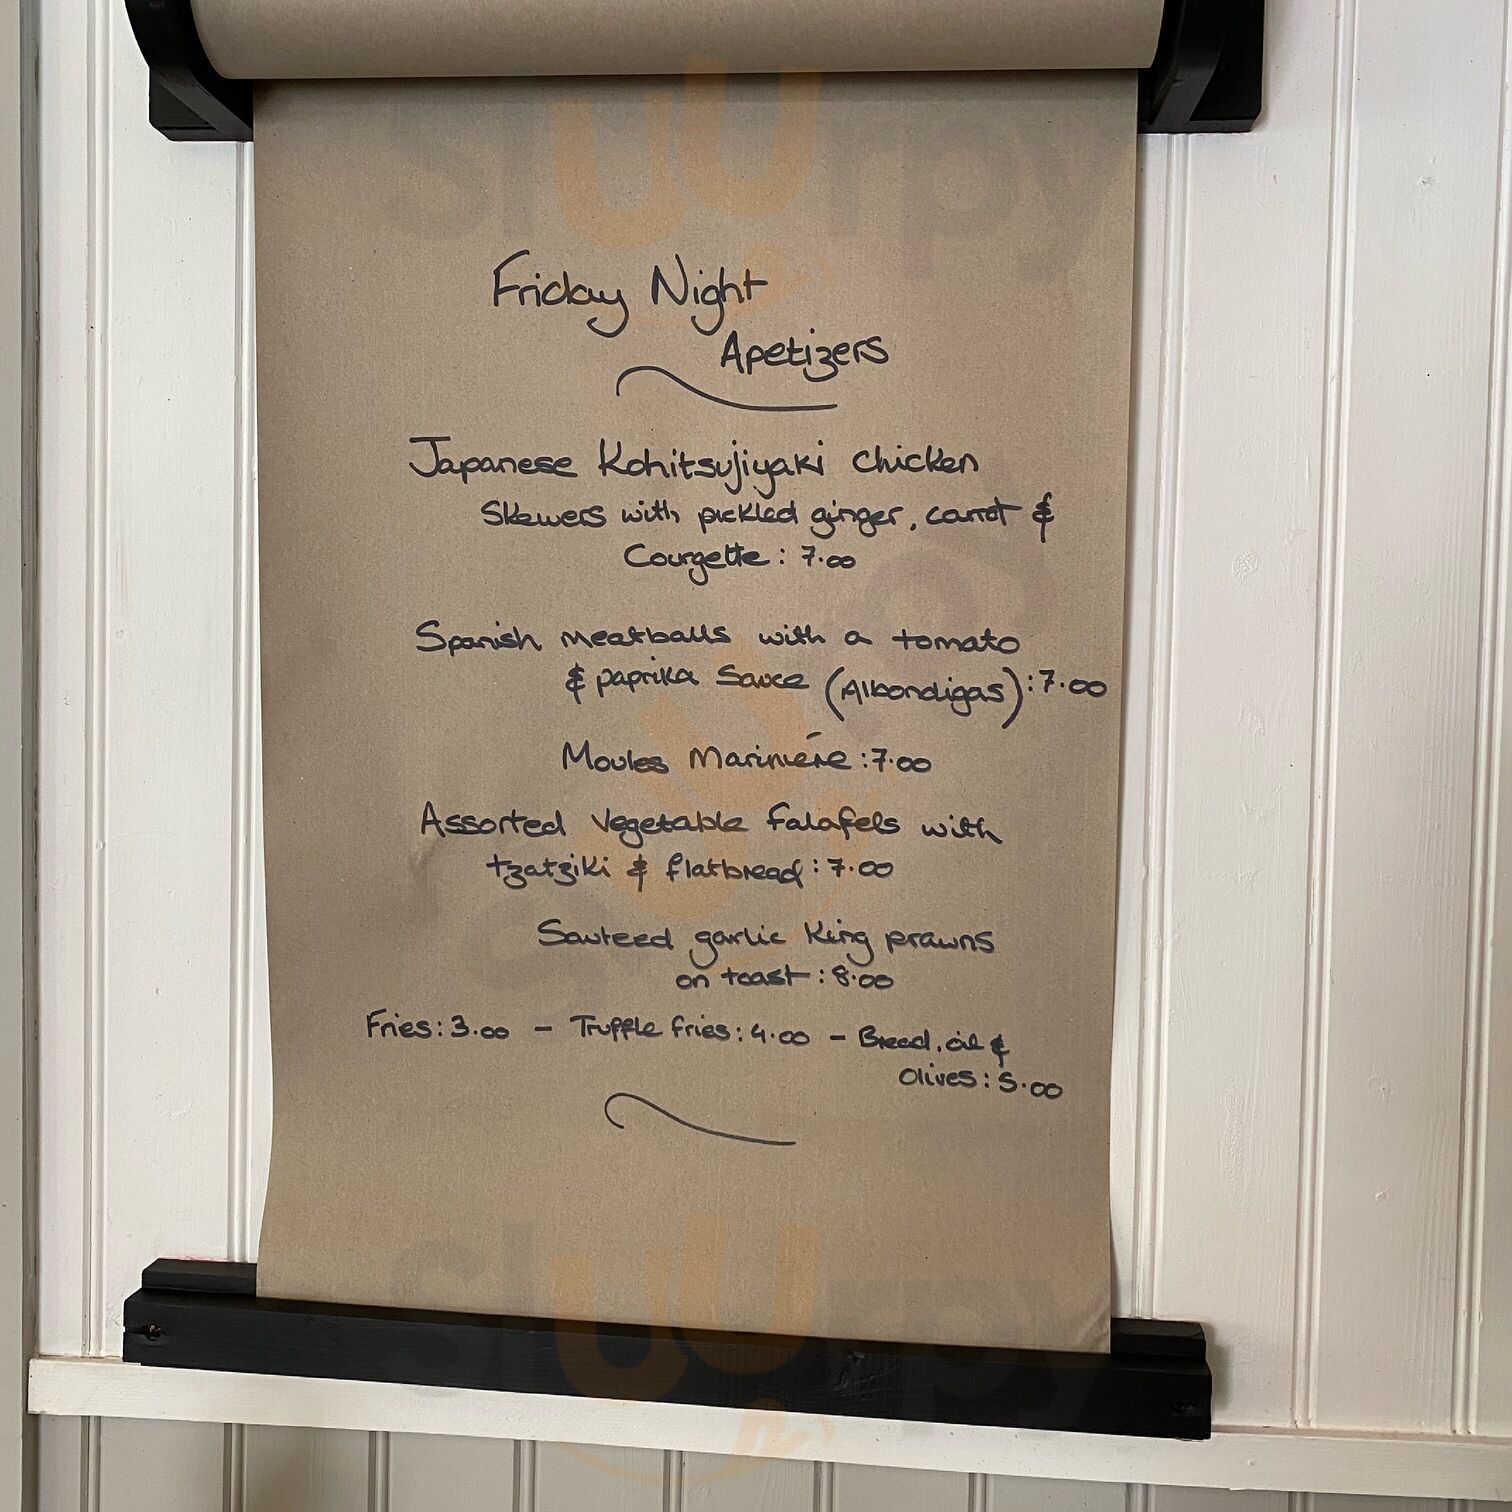 sluurpy
Friday Night
Apetizers
Japanese Kohitsujiyaki chicken
Skewers with pickled ginger, carrot &
Courgette : 7.00
Spanish meatballs with a tomato
& paprika Sauce (Albondigas) : 7.00
Moules Marinière : 7.00
Assorted Vegetable falafels with
tzatziki & flatbread : 7.00
Sauteed garlic King prawns
on toast : 8.00
Fries : 3.00 - Truffle fries : 4.00 - Bread, oil &
Olives : 5.00
sluurpy